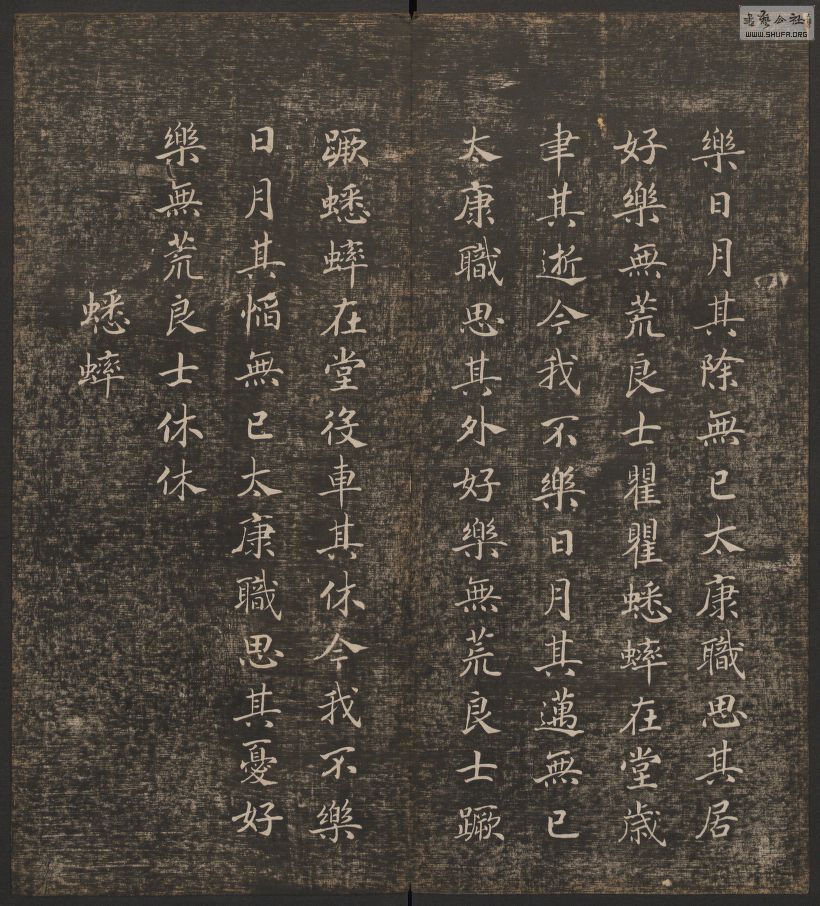 樂日月其除無已太康職思其居
好樂無荒良士瞿瞿蟋蟀在堂歳
聿其逝今我不樂日月其邁無已
太康職思其外好樂無荒良士蹶
蹶蟋蟀在堂役車其休今我不樂
日月其慆無已太康職思其憂好
樂無荒良士休休
蟋蟀
WWW.SHUFA.ORG